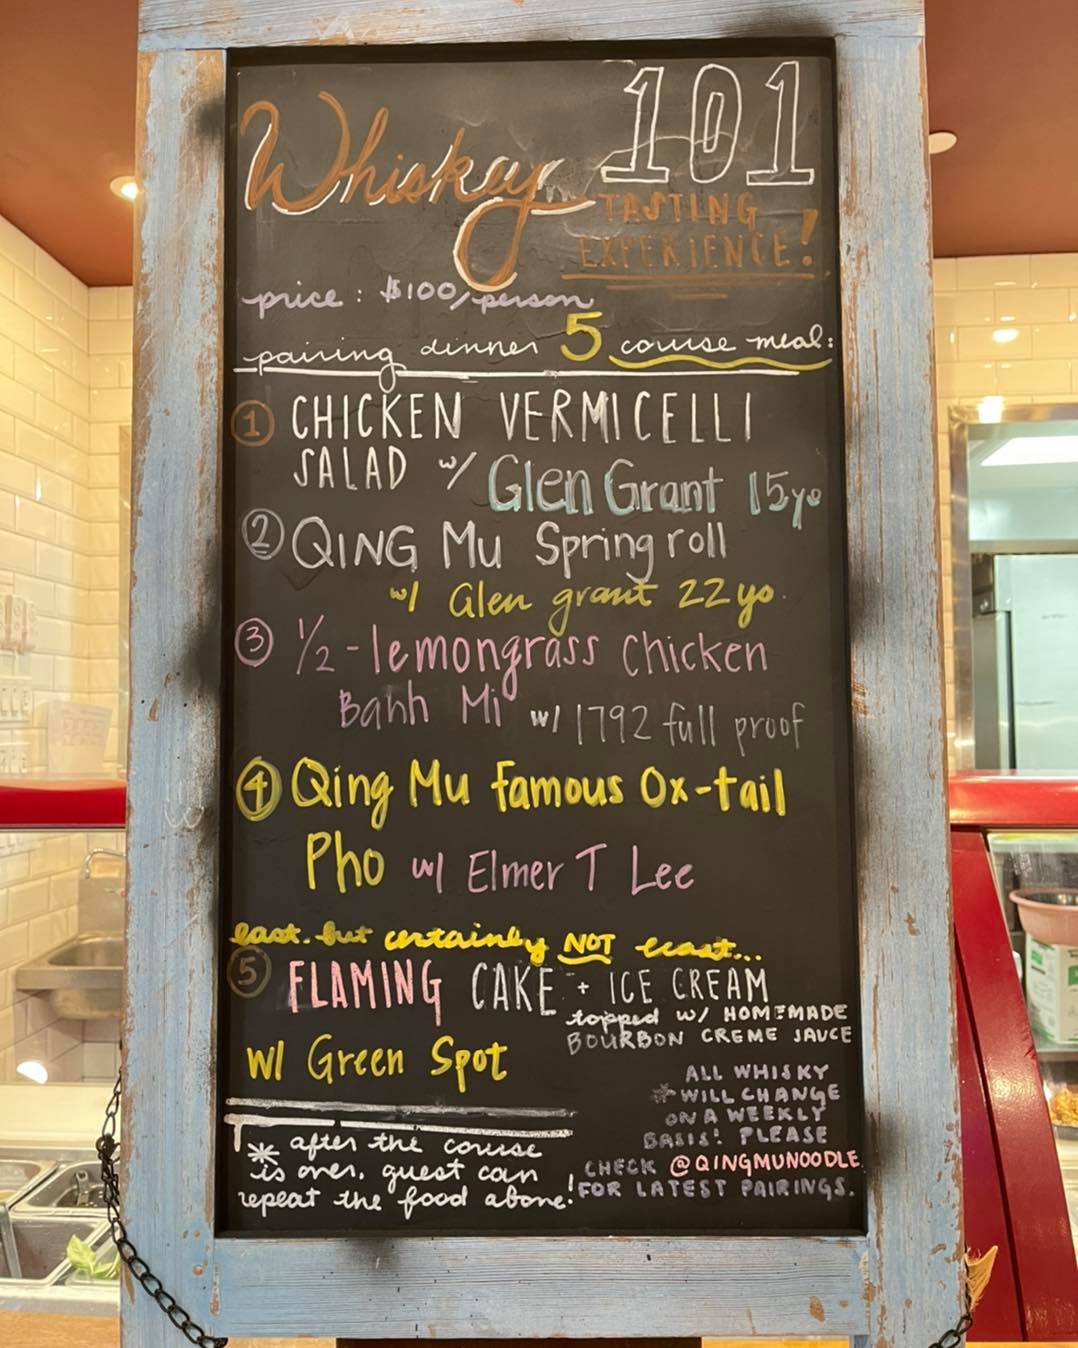 Whiskey 101
TASTING
EXPERIENCE!
price: $100/person
pairing dinner 5 course meal:
1 CHICKEN VERMICELLI
SALAD w/ Glen Grant 15yo
2 QING Mu Spring roll
w/ Glen grant 22 yo.
3 1/2-lemongrass Chicken
Banh Mi w/ 1792 full proof
4 Qing Mu famous Ox-tail
Pho w/ Elmer T Lee
last but certainly NOT least...
5 FLAMING CAKE + ICE CREAM
topped w/ HOMEMADE
BOURBON CREME SAUCE
w/ Green Spot
* after the course
is over, guest can
repeat the food above!
ALL WHISKY
* WILL CHANGE
ON A WEEKLY
BASIS! PLEASE
CHECK @QINGMUNOODLE
FOR LATEST PAIRINGS.